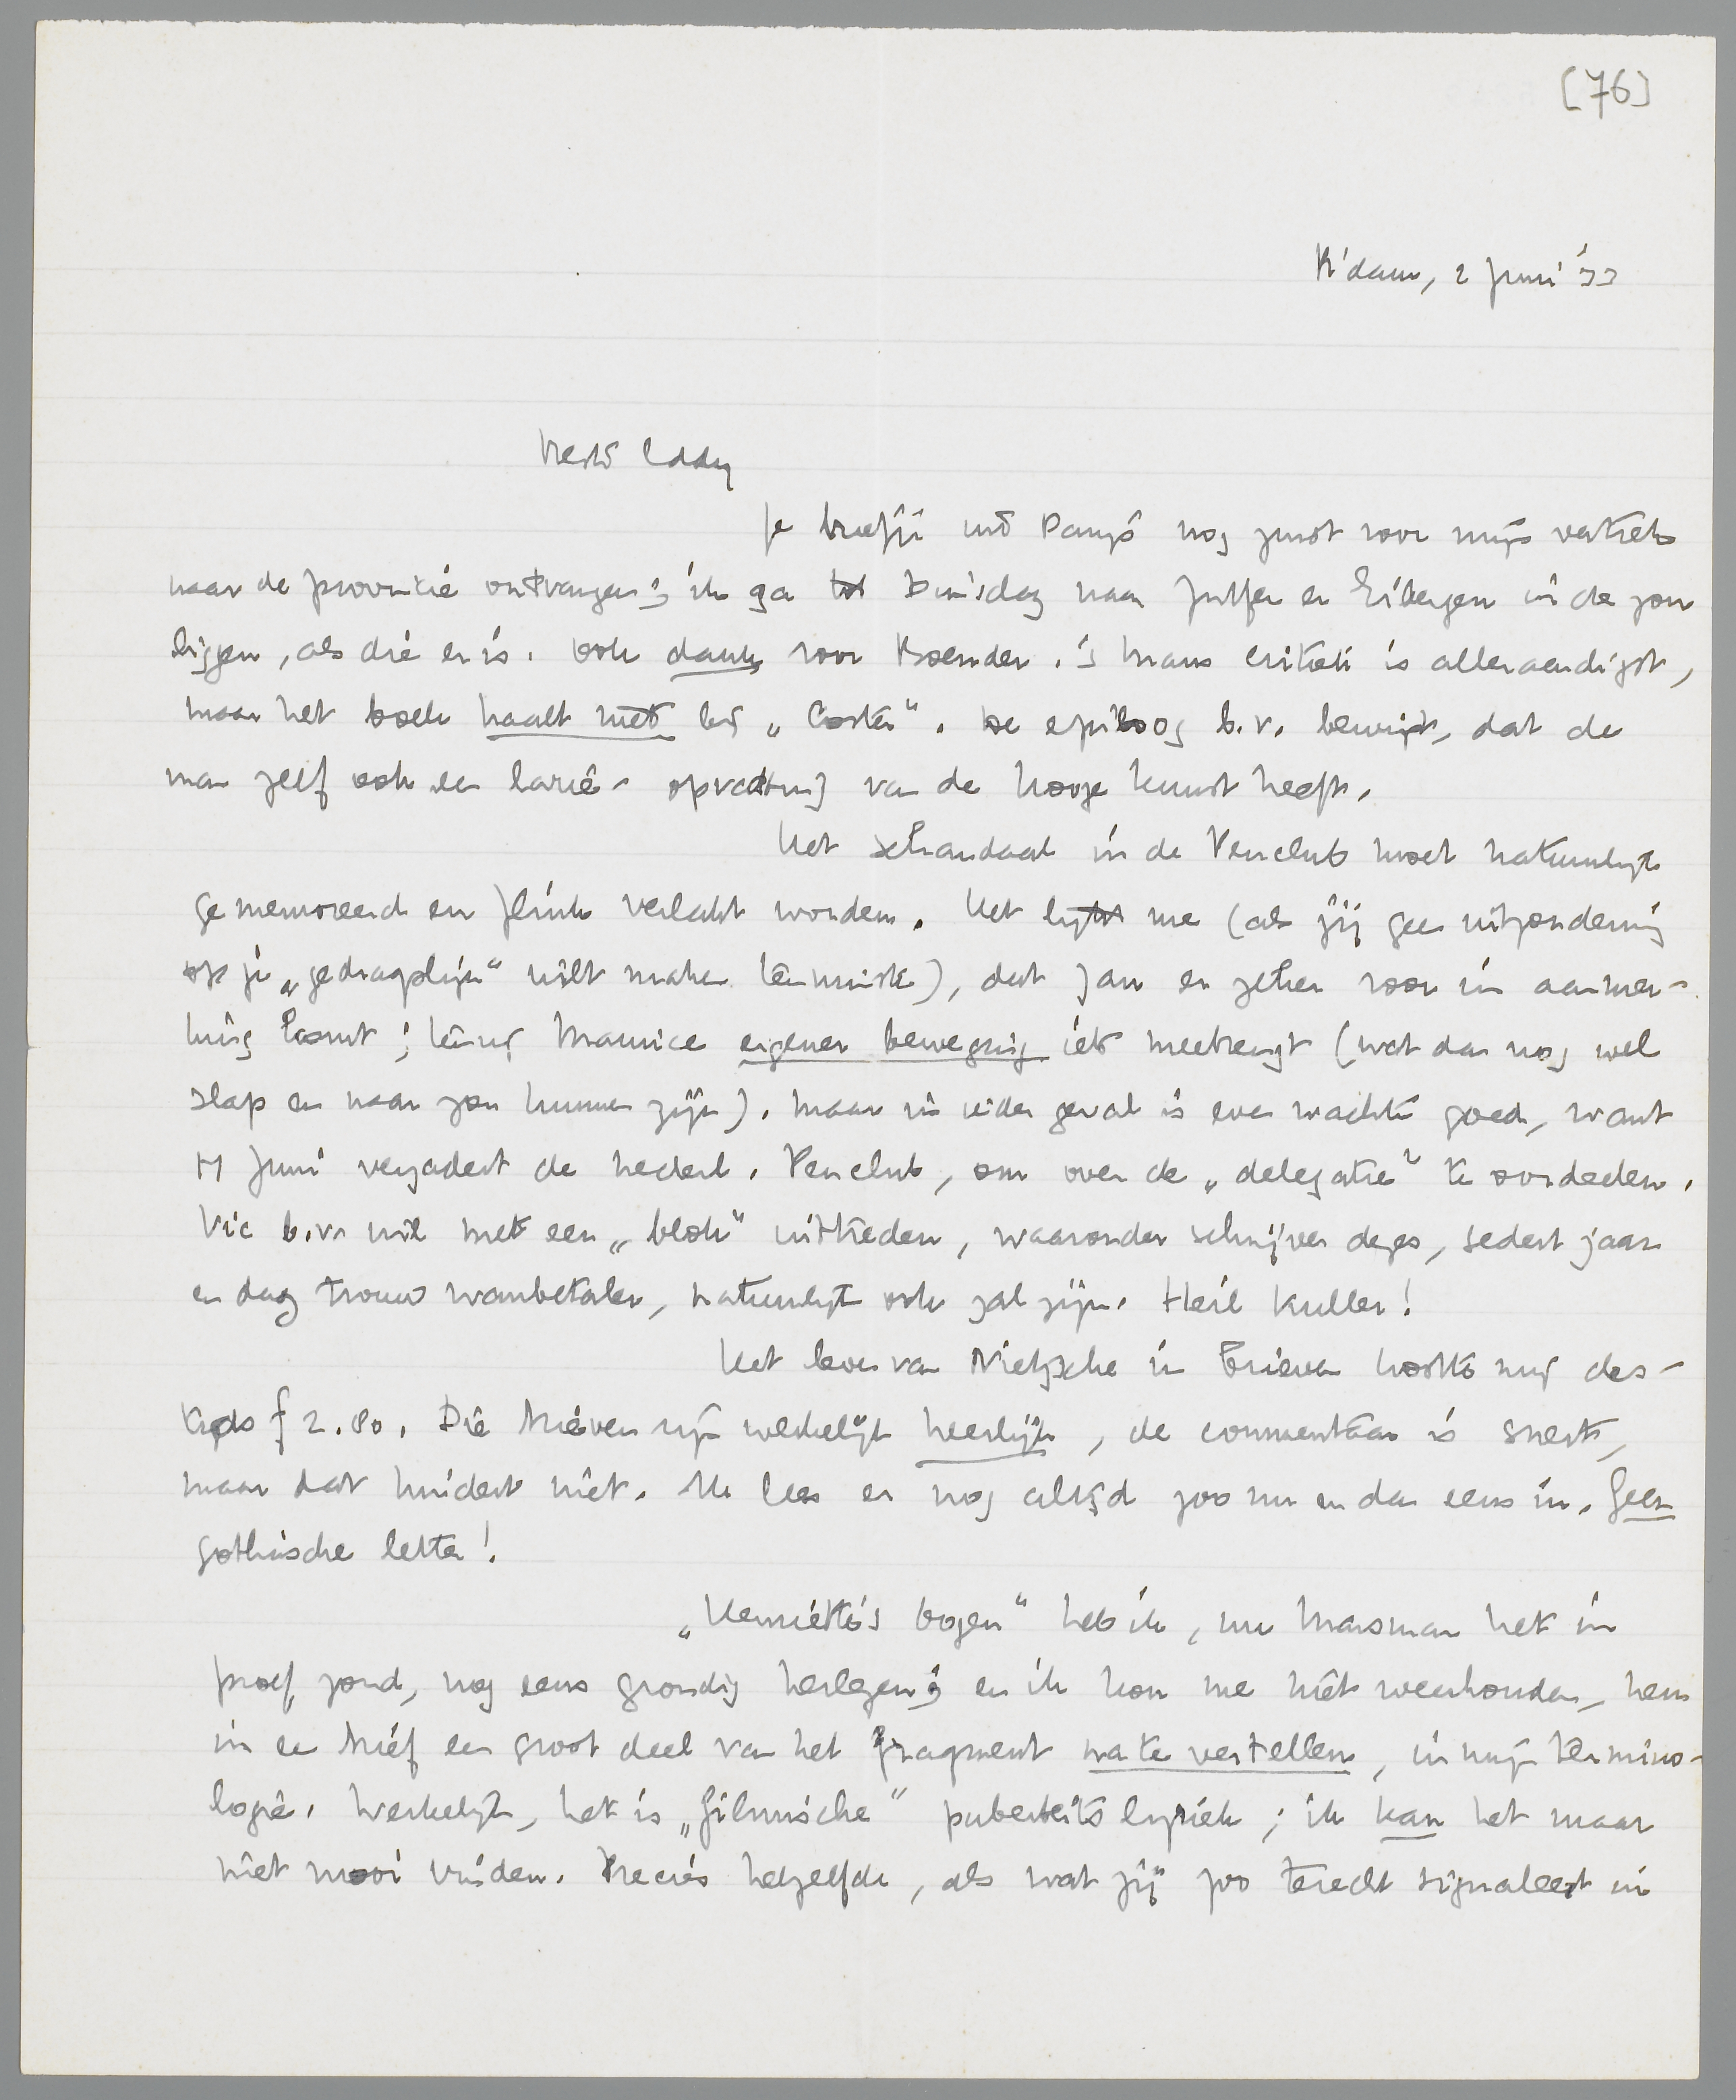 [76]
R'dam, 2 Juni '33
Beste Eddy
Je briefje uit Parijs nog juist voor mijn vertrek
naar de provincie ontvangen; ik ga tot Dinsdag naar Zutfen en Eibergen in de zon
liggen, als die er is. Ook dank voor Roemder. 's Mans critiek is alleraardigst,
maar het boek haalt niet bij „Coster". De epiloog b.v. bewijst, dat de
man zelf ook een larie-opvatting van de hooge kunst heeft.
Het schandaal in de Penclub moet natuurlijk
gememoreerd en flink verlakt worden. Het lijkt me (als jij geen uitzondering
op je „gedragslijn" wilt maken tenminste), dat Jan er zeker voor in aanmer-
king komt; tenzij Maurice eigener beweging iets meebrengt (wat dan nog wel
slap en naar zou kunnen zijn). Maar in ieder geval is even wachten goed, want
17 Juni vergadert de Nederl. Penclub, om over de „delegatie" te oordeelen.
Vic b.v. wil met een „blok" uittreden, waaronder schrijver dezes, sedert jaar
en dag trouw wanbetaler, natuurlijk ook zal zijn. Heil Kuller!
Het leven van Nietzsche in Brieven kostte mij des-
tijds f 2.80. Die brieven zijn werkelijk heerlijk, de commentaar is snert,
maar dat hindert niet. Ik lees er nog altijd zoo nu en dan eens in. Geen
gothische letter!
„Henriëtte's oogen" heb ik, nu Marsman het in
proef zond, nog eens grondig herlezen; en ik kon me niet weerhouden, hem
in een brief een groot deel van het fragment na te vertellen, in mijn termino-
logie. Werkelijk, het is „filmische" puberteitslyriek; ik kan het maar
niet mooi vinden. Precies hetzelfde, als wat jij zoo terecht signaleert in